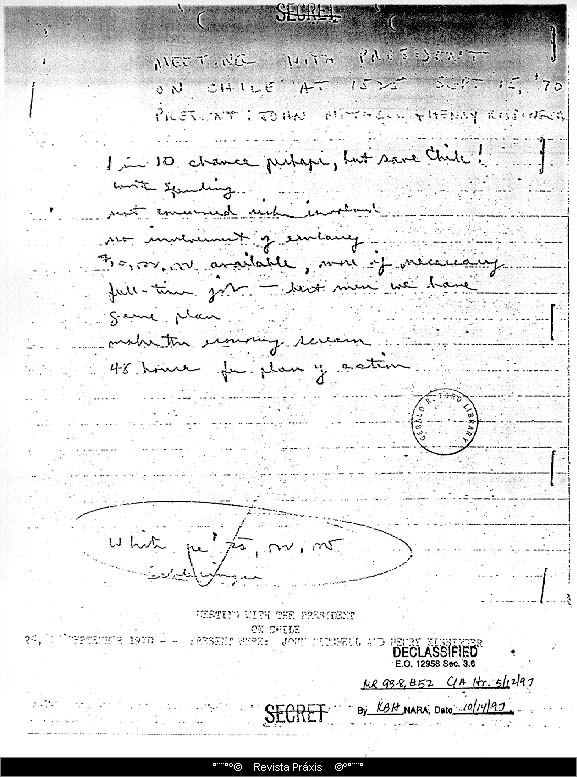 SECRET
MEETING WITH PRESIDENT
ON CHILE AT 1525 SEPT 15, '70
PRESENT: JOHN MITCHELL & HENRY KISSINGER
1 in 10 chance perhaps, but save Chile!
worth spending
not concerned risks involved
no involvement of embassy
$10,000,000 available, more if necessary
full-time job — best men we have
game plan
make the economy scream
48 hours for plan of action
GERALD R. FORD LIBRARY
MEETING WITH THE PRESIDENT
ON CHILE
SEPTEMBER 1970 -- PRESENT WERE: JOHN MITCHELL AND HENRY KISSINGER
DECLASSIFIED
E.O. 12958 Sec. 3.6
MR 93-8, #52 CIA ltr. 5/12/97
By KBH NARA, Date 10/14/97
SECRET
Revista Práxis